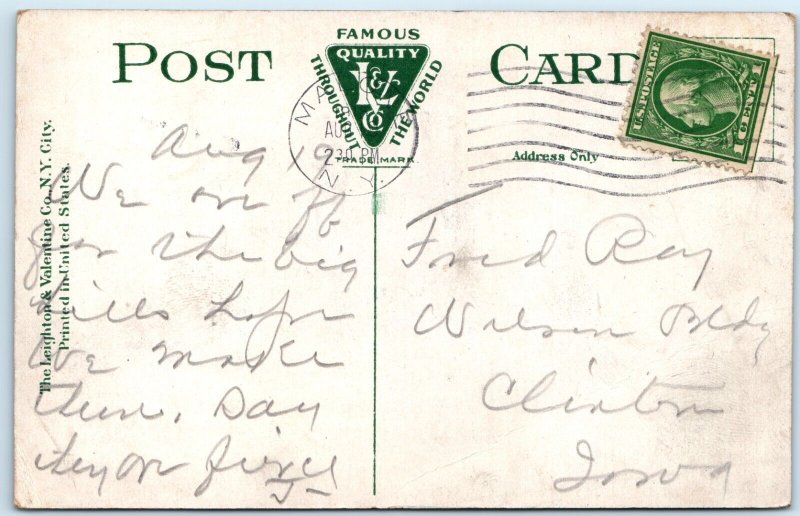 POST CARD
FAMOUS
QUALITY
THROUGHOUT THE WORLD
L&V Co
TRADE MARK
MA
AU
2 30 PM
N.Y.
U.S. POSTAGE
1 CENT 1
Address Only
The Leighton & Valentine Co., N.Y. City.
Printed in United States.
Aug 19
We are off
for the big
hills hope
we make
them. Say
they are fierce
J—
Fred Ray
Wilson Bldg
Clinton
Iowa